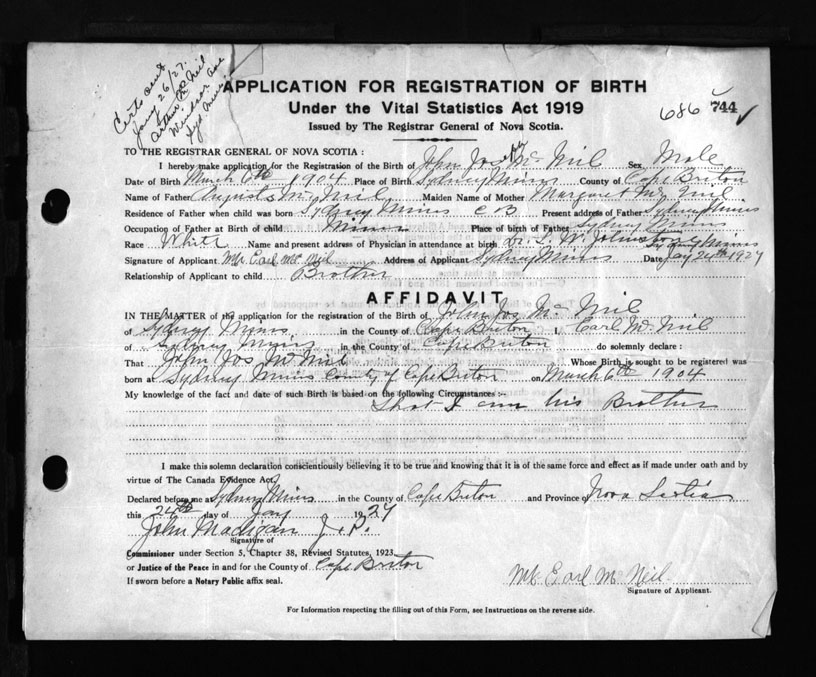 Certs sent
Jany 26/27.
Arthur McNeil
Windsor Ave
Syd Mines
APPLICATION FOR REGISTRATION OF BIRTH
Under the Vital Statistics Act 1919
Issued by The Registrar General of Nova Scotia.
686 744
TO THE REGISTRAR GENERAL OF NOVA SCOTIA :
I hereby make application for the Registration of the Birth of John Jos Mc Neil Sex Male
Date of Birth March 6th 1904 Place of Birth Sydney Mines County of Cape Breton
Name of Father Mc Neil Maiden Name of Mother Margaret Mc Neil
Residence of Father when child was born Sydney Mines C B Present address of Father Sydney Mines
Occupation of Father at Birth of child Miner Place of birth of Father Sydney Mines
Race White Name and present address of Physician in attendance at birth Dr. L. W. Johnstone Sydney Mines
Signature of Applicant Mr Earl Mc Neil Address of Applicant Sydney Mines Date Jay 24th 1927
Relationship of Applicant to child Brother
AFFIDAVIT
IN THE MATTER of the application for the registration of the Birth of John Jos Mc Neil
of Sydney Mines in the County of Cape Breton I, Earl Mc Neil
of Sydney Mines in the County of Cape Breton do solemnly declare :
That John Jos Mc Neil Whose Birth is sought to be registered was
born at Sydney Mines County of Cape Breton on March 6th 1904
My knowledge of the fact and date of such Birth is based on the following Circumstances :-
That I am his Brother
I make this solemn declaration conscientiously believing it to be true and knowing that it is of the same force and effect as if made under oath and by
virtue of The Canada Evidence Act.
Declared before me at Sydney Mines in the County of Cape Breton and Province of Nova Scotia
this 24th day of Jay 1927
John Madigan J. P.
Signature of
Commissioner under Section 5, Chapter 38, Revised Statutes, 1923.
or Justice of the Peace in and for the County of Cape Breton
If sworn before a Notary Public affix seal.
Mr Earl Mc Neil
Signature of Applicant.
For Information respecting the filling out of this Form, see Instructions on the reverse side.